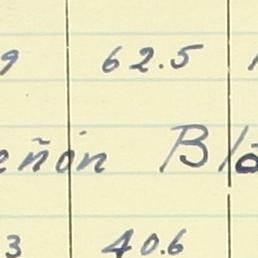 9 62.5
eñón Blá
3 40.6